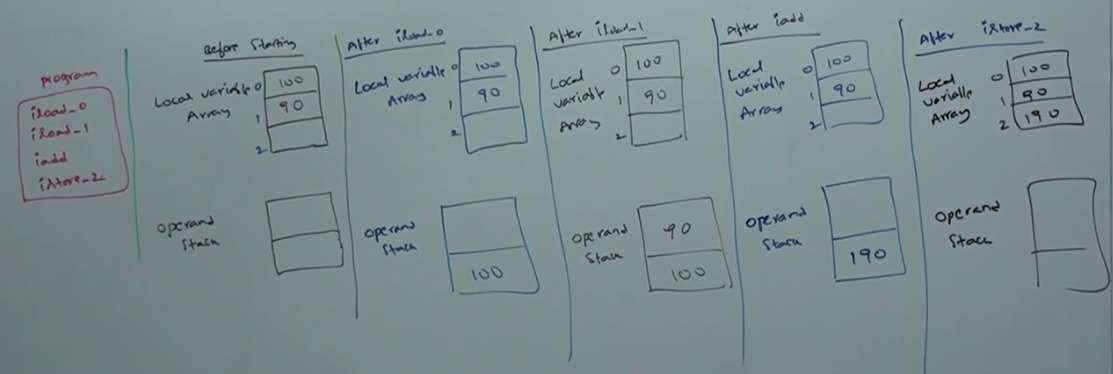 program
iload_0
iload_1
iadd
istore_2
Before Starting
Local variable
Array
0 100
1 90
2
Operand
Stack
After iload_0
Local variable
Array
0 100
1 90
2
Operand
Stack
100
After iload_1
Local
variable
Array
0 100
1 90
2
Operand
Stack
90
100
After iadd
Local
variable
Array
0 100
1 90
2
Operand
Stack
190
After istore_2
Local
variable
Array
0 100
1 90
2 190
Operand
Stack